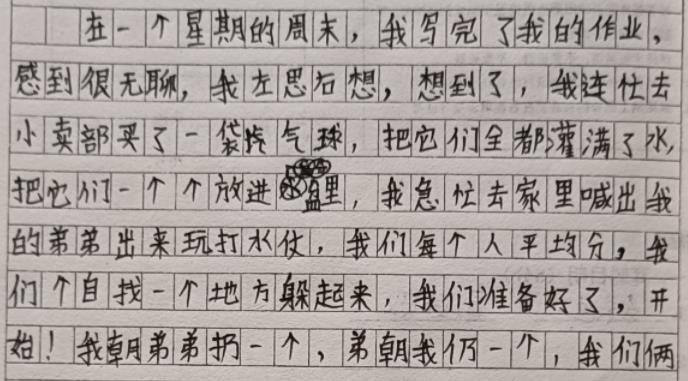 在一个星期的周末，我写完了我的作业，
感到很无聊，我左思右想，想到了，我连忙去
小卖部买了一袋汽气球，把它们全都灌满了水，
把它们一个个放进盆里，我急忙去家里喊出我
的弟弟出来玩打水仗，我们每个人平均分，我
们个自找一个地方躲起来，我们准备好了，开
始！我朝弟弟扔一个，弟朝我仍一个，我们俩